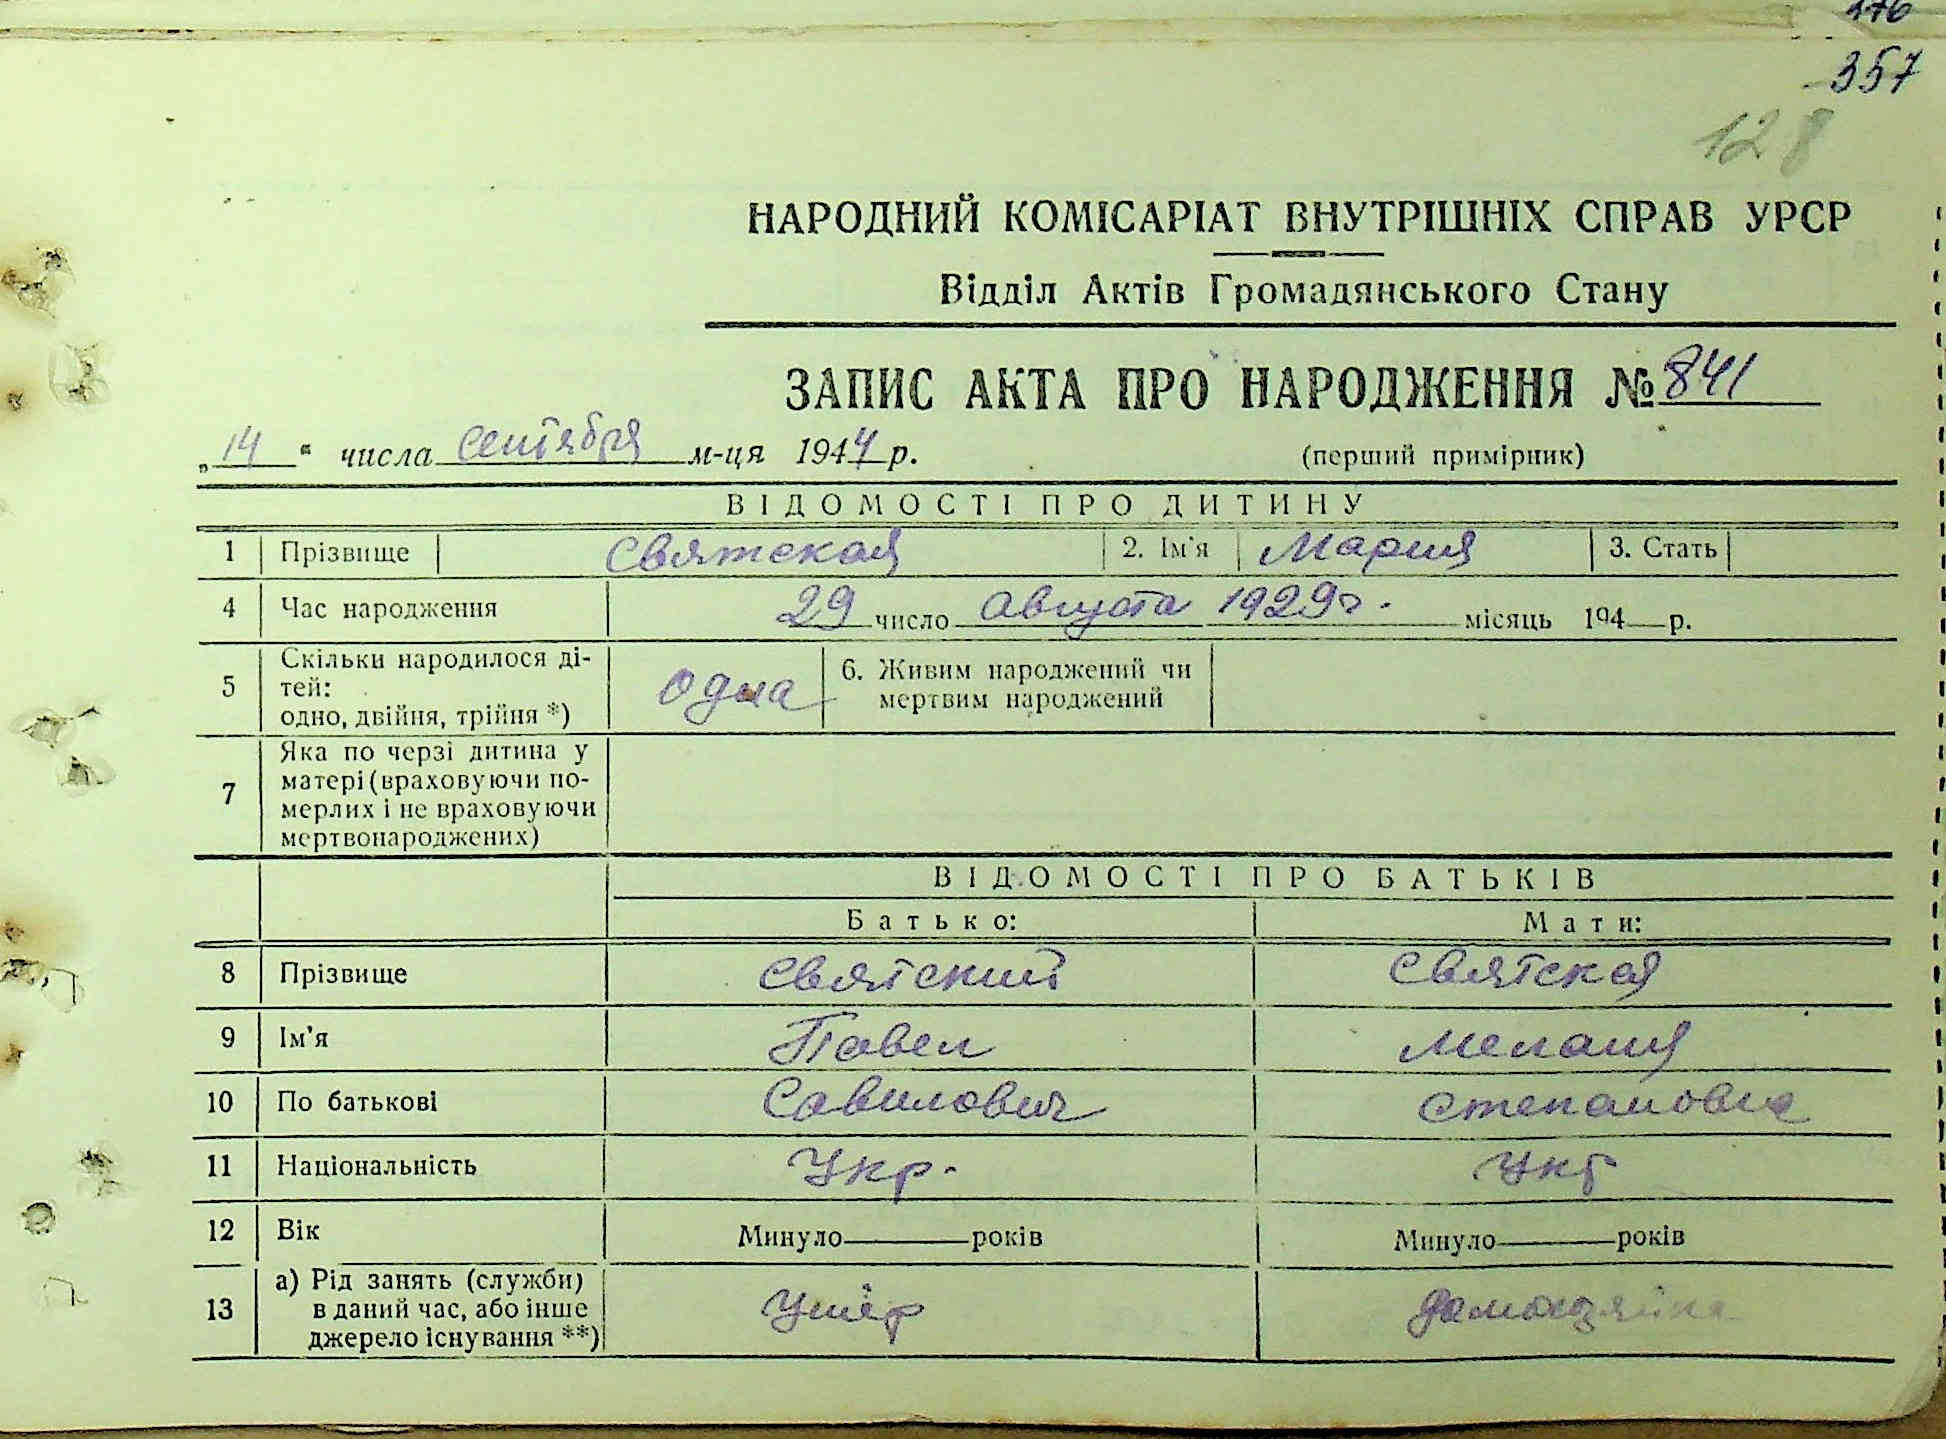 176
357
128
НАРОДНИЙ КОМІСАРІАТ ВНУТРІШНІХ СПРАВ УРСР
Відділ Актів Громадянського Стану
ЗАПИС АКТА ПРО НАРОДЖЕННЯ № 841
„14“ числа сентября м-ця 1944 р. (перший примірник)
ВІДОМОСТІ ПРО ДИТИНУ
1 Прізвище Святская 2. Ім'я Мария 3. Стать
4 Час народження 29 число августа 1929 г. місяць 194 р.
5 Скільки народилося ді-
тей:
одно, двійня, трійня *) одна 6. Живим народжений чи
мертвим народжений
7 Яка по черзі дитина у
матері (враховуючи по-
мерлих і не враховуючи
мертвонароджених)
ВІДОМОСТІ ПРО БАТЬКІВ
Батько: Мати:
8 Прізвище Святский Святская
9 Ім'я Павел Мелания
10 По батькові Савилович Степановна
11 Національність Укр. Укр
12 Вік Минуло років Минуло років
13 а) Рід занять (служби)
в даний час, або інше
джерело існування **) Умер домохозяйка